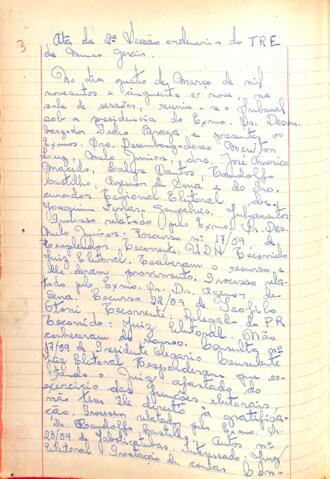 3
Ata da 2ª Sessão ordinaria do TRE
de Minas Gerais.
No dia quatro de Março de mil
novecentos e cinquenta e nove, na
sala de sessões, reuniu-se o Tribunal
sob a presidencia do Exmo. Dr. Desem
bargador Pedro Braga e presentes os
Exmos. Drs. Desembargadores Merolino
Luz, Melo Junior, drs. José Americo
Macedo, Dantas, Randolfo
Castilho, Agenor de Sena e do Pro
curador Regional Eleitoral dr.
Joaquim Ferreira Gonçalves. Julgamentos:
Processo relatado pelo Exmo. Sr. Des.
Melo Junior. Recurso nº 17/59, de
Resplendor. Recorrente: UDN Recorrido
Juiz Eleitoral. Receberam o recurso e
lhe deram provimento. Processo rela
tado pelo Exmo. Sr. Dr. Agenor de
Sena. Recurso 22/59 de Teofilo
Otoni Recorrente: Delegado do PR
Recorrido: Juiz Eleitoral. Não
conheceram do recurso. Consulta nº
17/59 de Presidente Olegario. Consulente
Juiz Eleitoral Responderam que es-
tando o Juiz afastado do
exercicio das funções eleitorais,
não tem ele direito à gratifica-
ção. Processo relatado pelo Exmo. Sr.
Dr. Randolfo Castilho. Autos nº
23/59 de Jaboticatubas. Interessado: Juiz
Eleitoral Prestação de contas